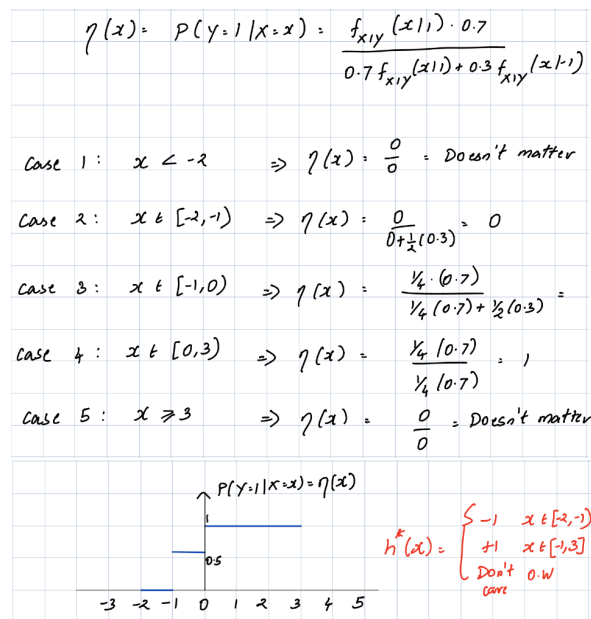 η(x) = P(Y=1|X=x) = f_{X|Y}(x|1) · 0.7 / 0.7 f_{X|Y}(x|1) + 0.3 f_{X|Y}(x|-1)
Case 1: x < -2 ⇒ η(x) = 0/0 = Doesn't matter
Case 2: x ∈ [-2,-1) ⇒ η(x) = 0/0+½(0.3) = 0
Case 3: x ∈ [-1,0) ⇒ η(x) = ¼·(0.7)/¼(0.7)+½(0.3) =
Case 4: x ∈ [0,3) ⇒ η(x) = ¼(0.7)/¼(0.7) = 1
Case 5: x ⩾ 3 ⇒ η(x) = 0/0 = Doesn't matter
P(Y=1|X=x) = η(x)
1
0.5
-3 -2 -1 0 1 2 3 4 5
h*(x) = { -1 x ∈ [-2,-1)
+1 x ∈ [-1,3]
Don't care O.W